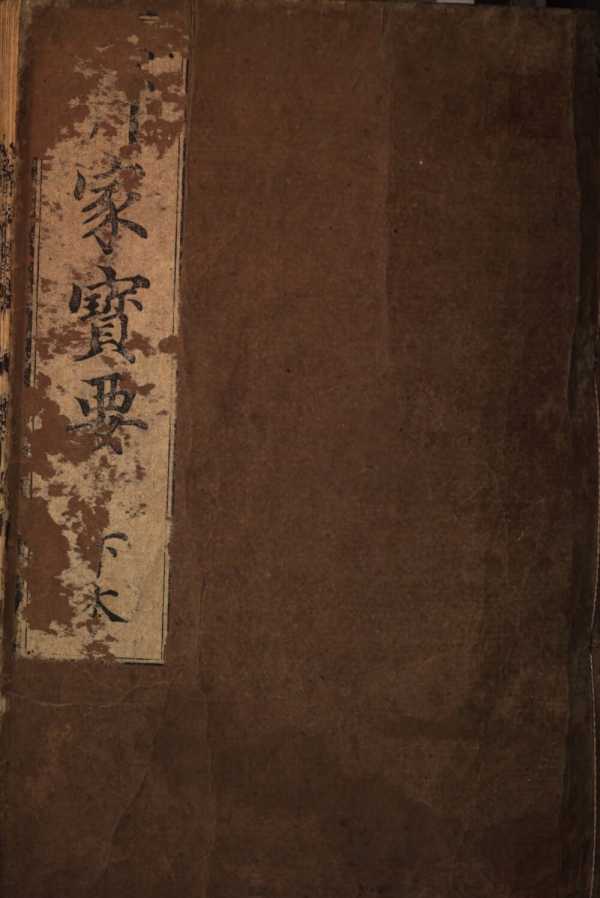 家寶要
下本